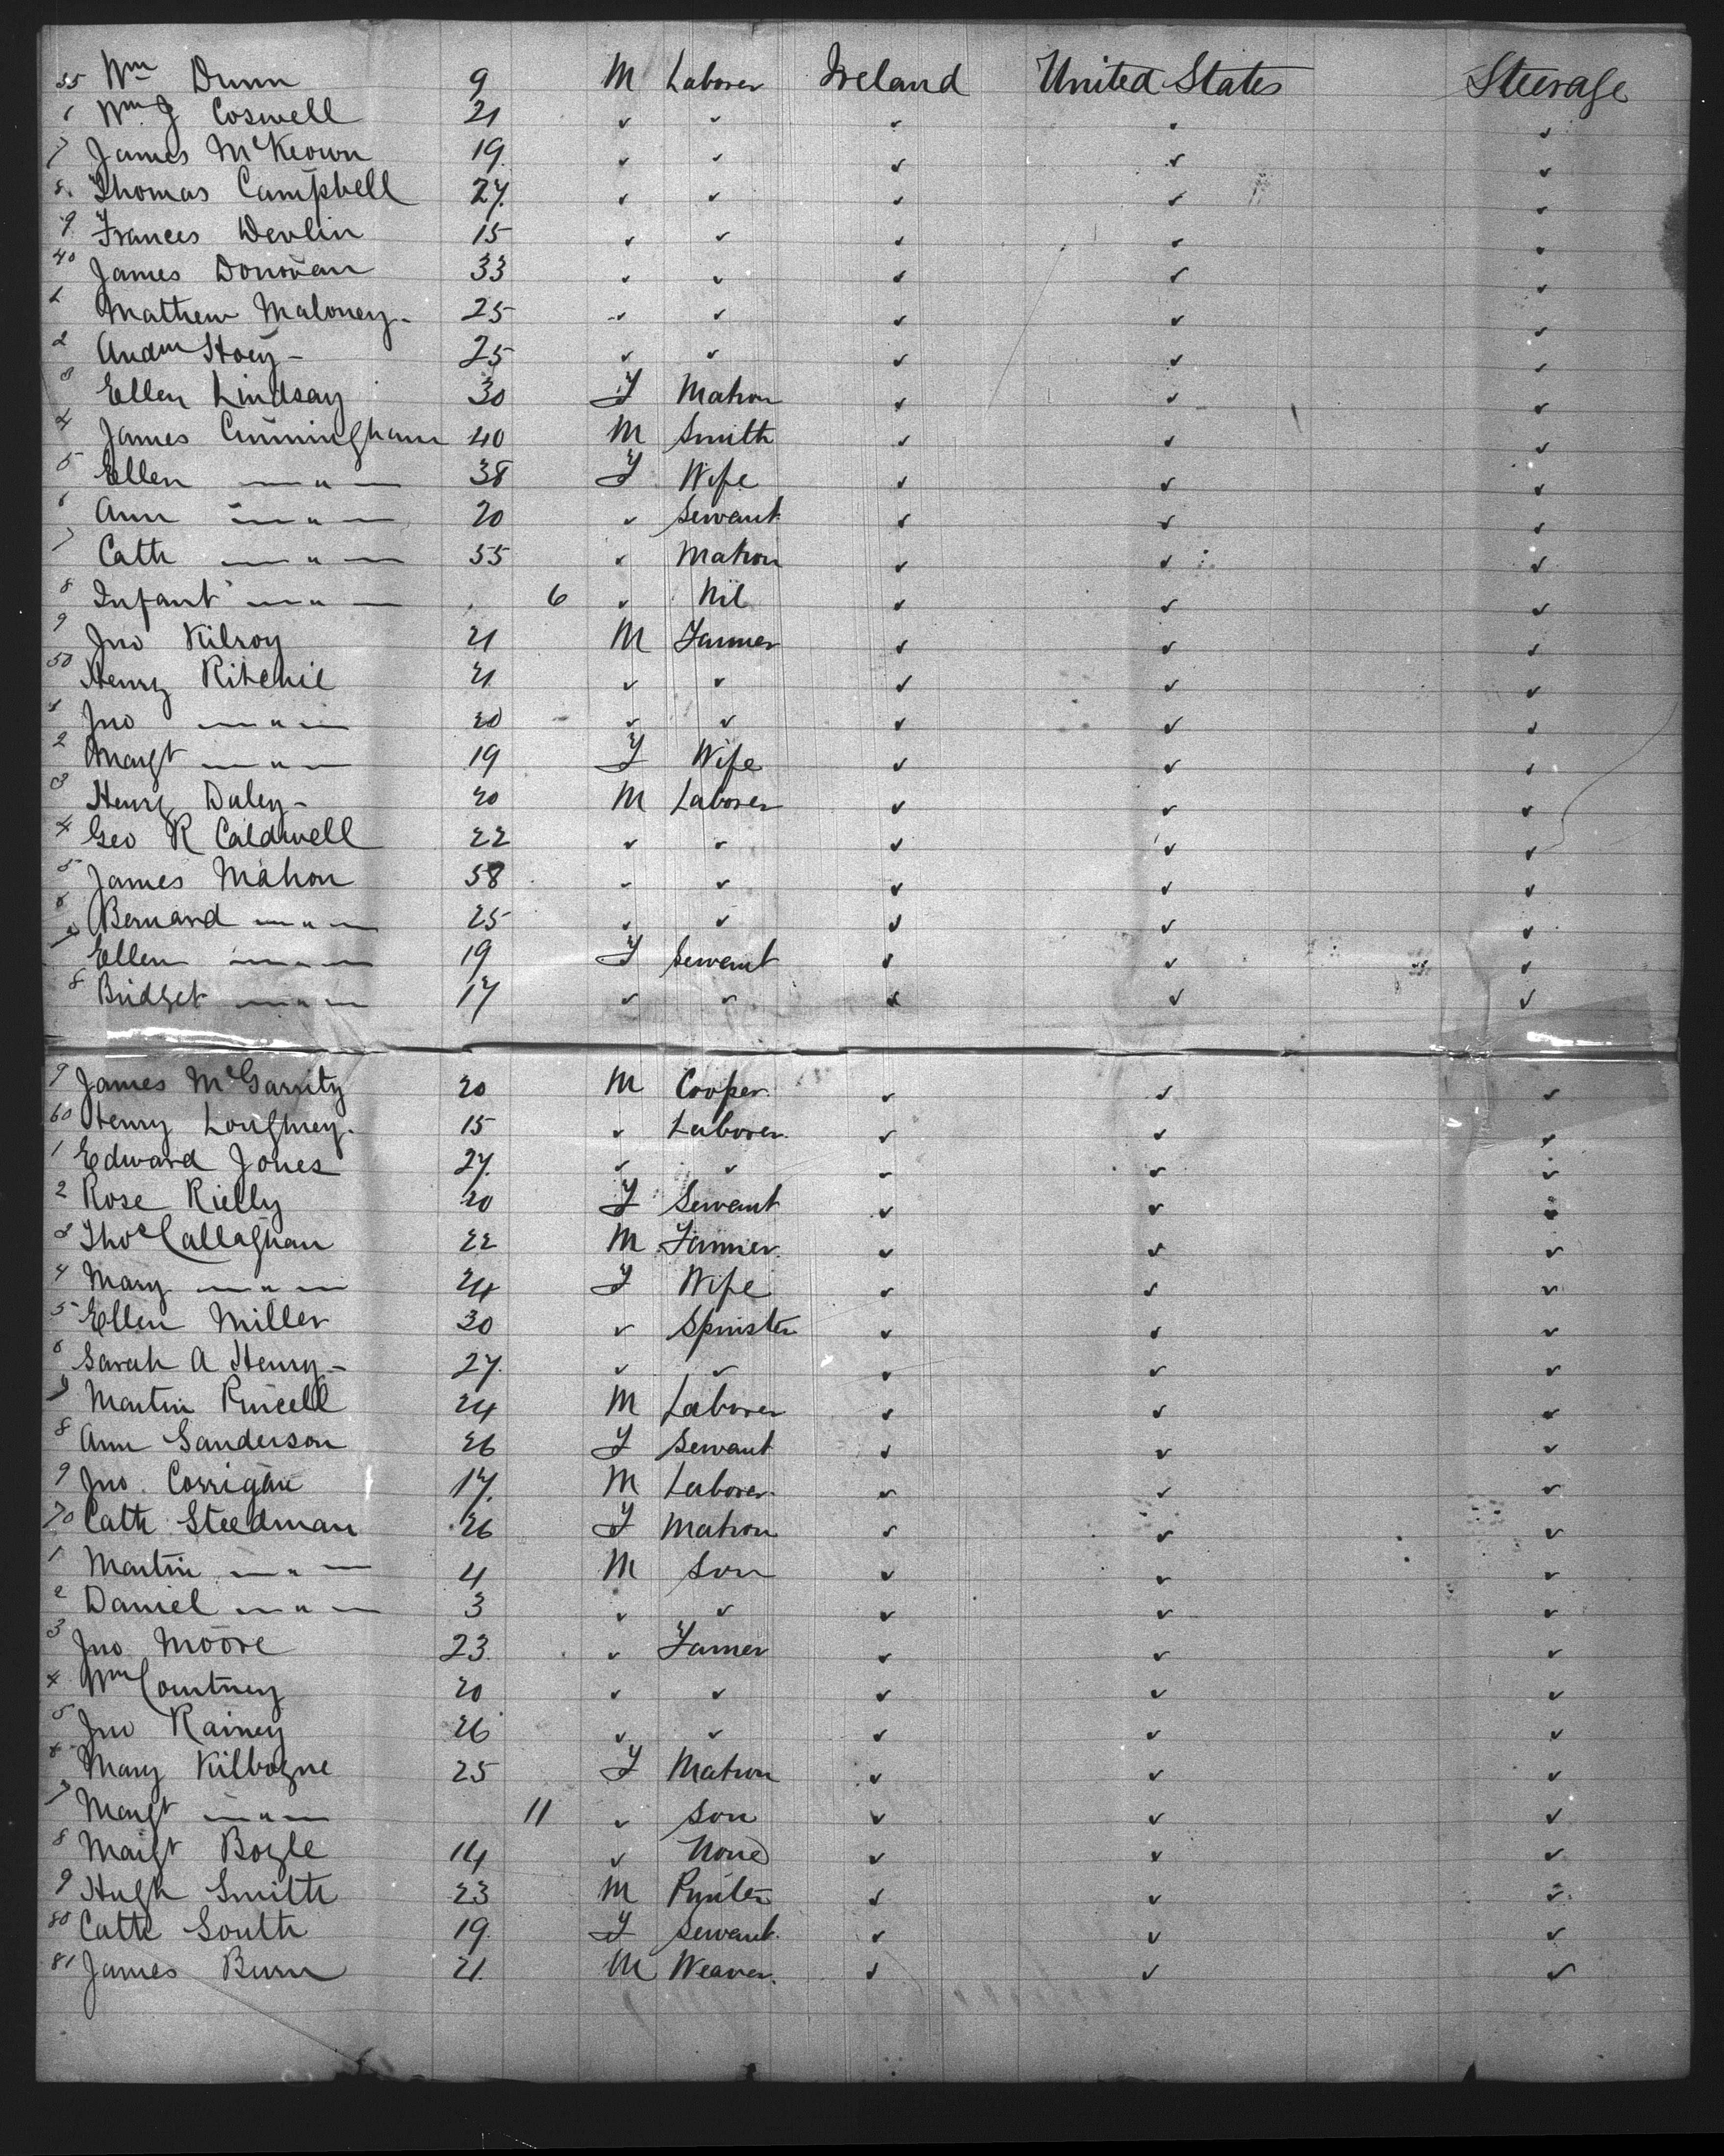 35 Wm Dunn 9 M Laborer Ireland United States Steerage
Wm J Coswell 21 " " " " "
7 James McKeown 19 " " " " "
8 Thomas Campbell 27 " " " " "
9 Frances Devlin 15 " " " " "
40 James Donovan 33 " " " " "
1 Mathew Maloney 25 " " " " "
2 Andw Hoey 25 " " " " "
3 Ellen Lindsay 30 F Matron " " "
4 James Cunningham 40 M Smith " " "
5 Ellen — " — 38 F Wife " " "
6 Ann — " — 20 " Servant " " "
7 Cath — " — 55 " Matron " " "
8 Infant — " — 6 " Nil " " "
9 Jno Kilroy 21 M Farmer " " "
50 Henry Ritchie 21 " " " " "
1 Jno — " — 20 " " " " "
2 Margt — " — 19 F Wife " " "
3 Henry Daley 20 M Laborer " " "
4 Geo R Caldwell 22 " " " " "
5 James Mahon 58 " " " " "
6 Bernard — " — 25 " " " " "
7 Ellen — " — 19 F Servant " " "
8 Bridget — " — 17 " " " " "
9 James McGarrity 20 M Cooper " " "
60 Henry Loughrey 15 " Laborer " " "
1 Edward Jones 27 " " " " "
2 Rose Rielly 20 F Servant " " "
3 Thos Callaghan 22 M Farmer " " "
4 Mary — " — 24 F Wife " " "
5 Ellen Miller 30 " Spinster " " "
6 Sarah A Henry 27 " " " " "
7 Martin Purcell 24 M Laborer " " "
8 Ann Sanderson 26 F Servant " " "
9 Jno Corrigan 17 M Laborer " " "
70 Cath Steedman 26 F Matron " " "
1 Martin — " — 4 M Son " " "
2 Daniel — " — 3 " " " " "
3 Jno Moore 23 " Farmer " " "
4 Wm Courtney 20 " " " " "
5 Jno Rainey 26 " " " " "
6 Mary Kilboyne 25 F Matron " " "
7 Margt — " — 11 " Son " " "
8 Margt Boyle 14 " None " " "
9 Hugh Smith 23 M Printer " " "
80 Cath South 19 F Servant " " "
81 James Burn 21 M Weaver " " "